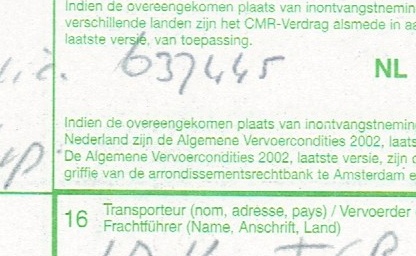 Indien de overeengekomen plaats van inontvangstneming
verschillende landen zijn het CMR-Verdrag alsmede in aa
laatste versie, van toepassing.
637445
NL
Indien de overeengekomen plaats van inontvangstneming
Nederland zijn de Algemene Vervoercondities 2002, laats
De Algemene Vervoercondities 2002, laatste versie, zijn g
griffie van de arrondissementsrechtbank te Amsterdam e
16 Transporteur (nom, adresse, pays) / Vervoerder
Frachtführer (Name, Anschrift, Land)